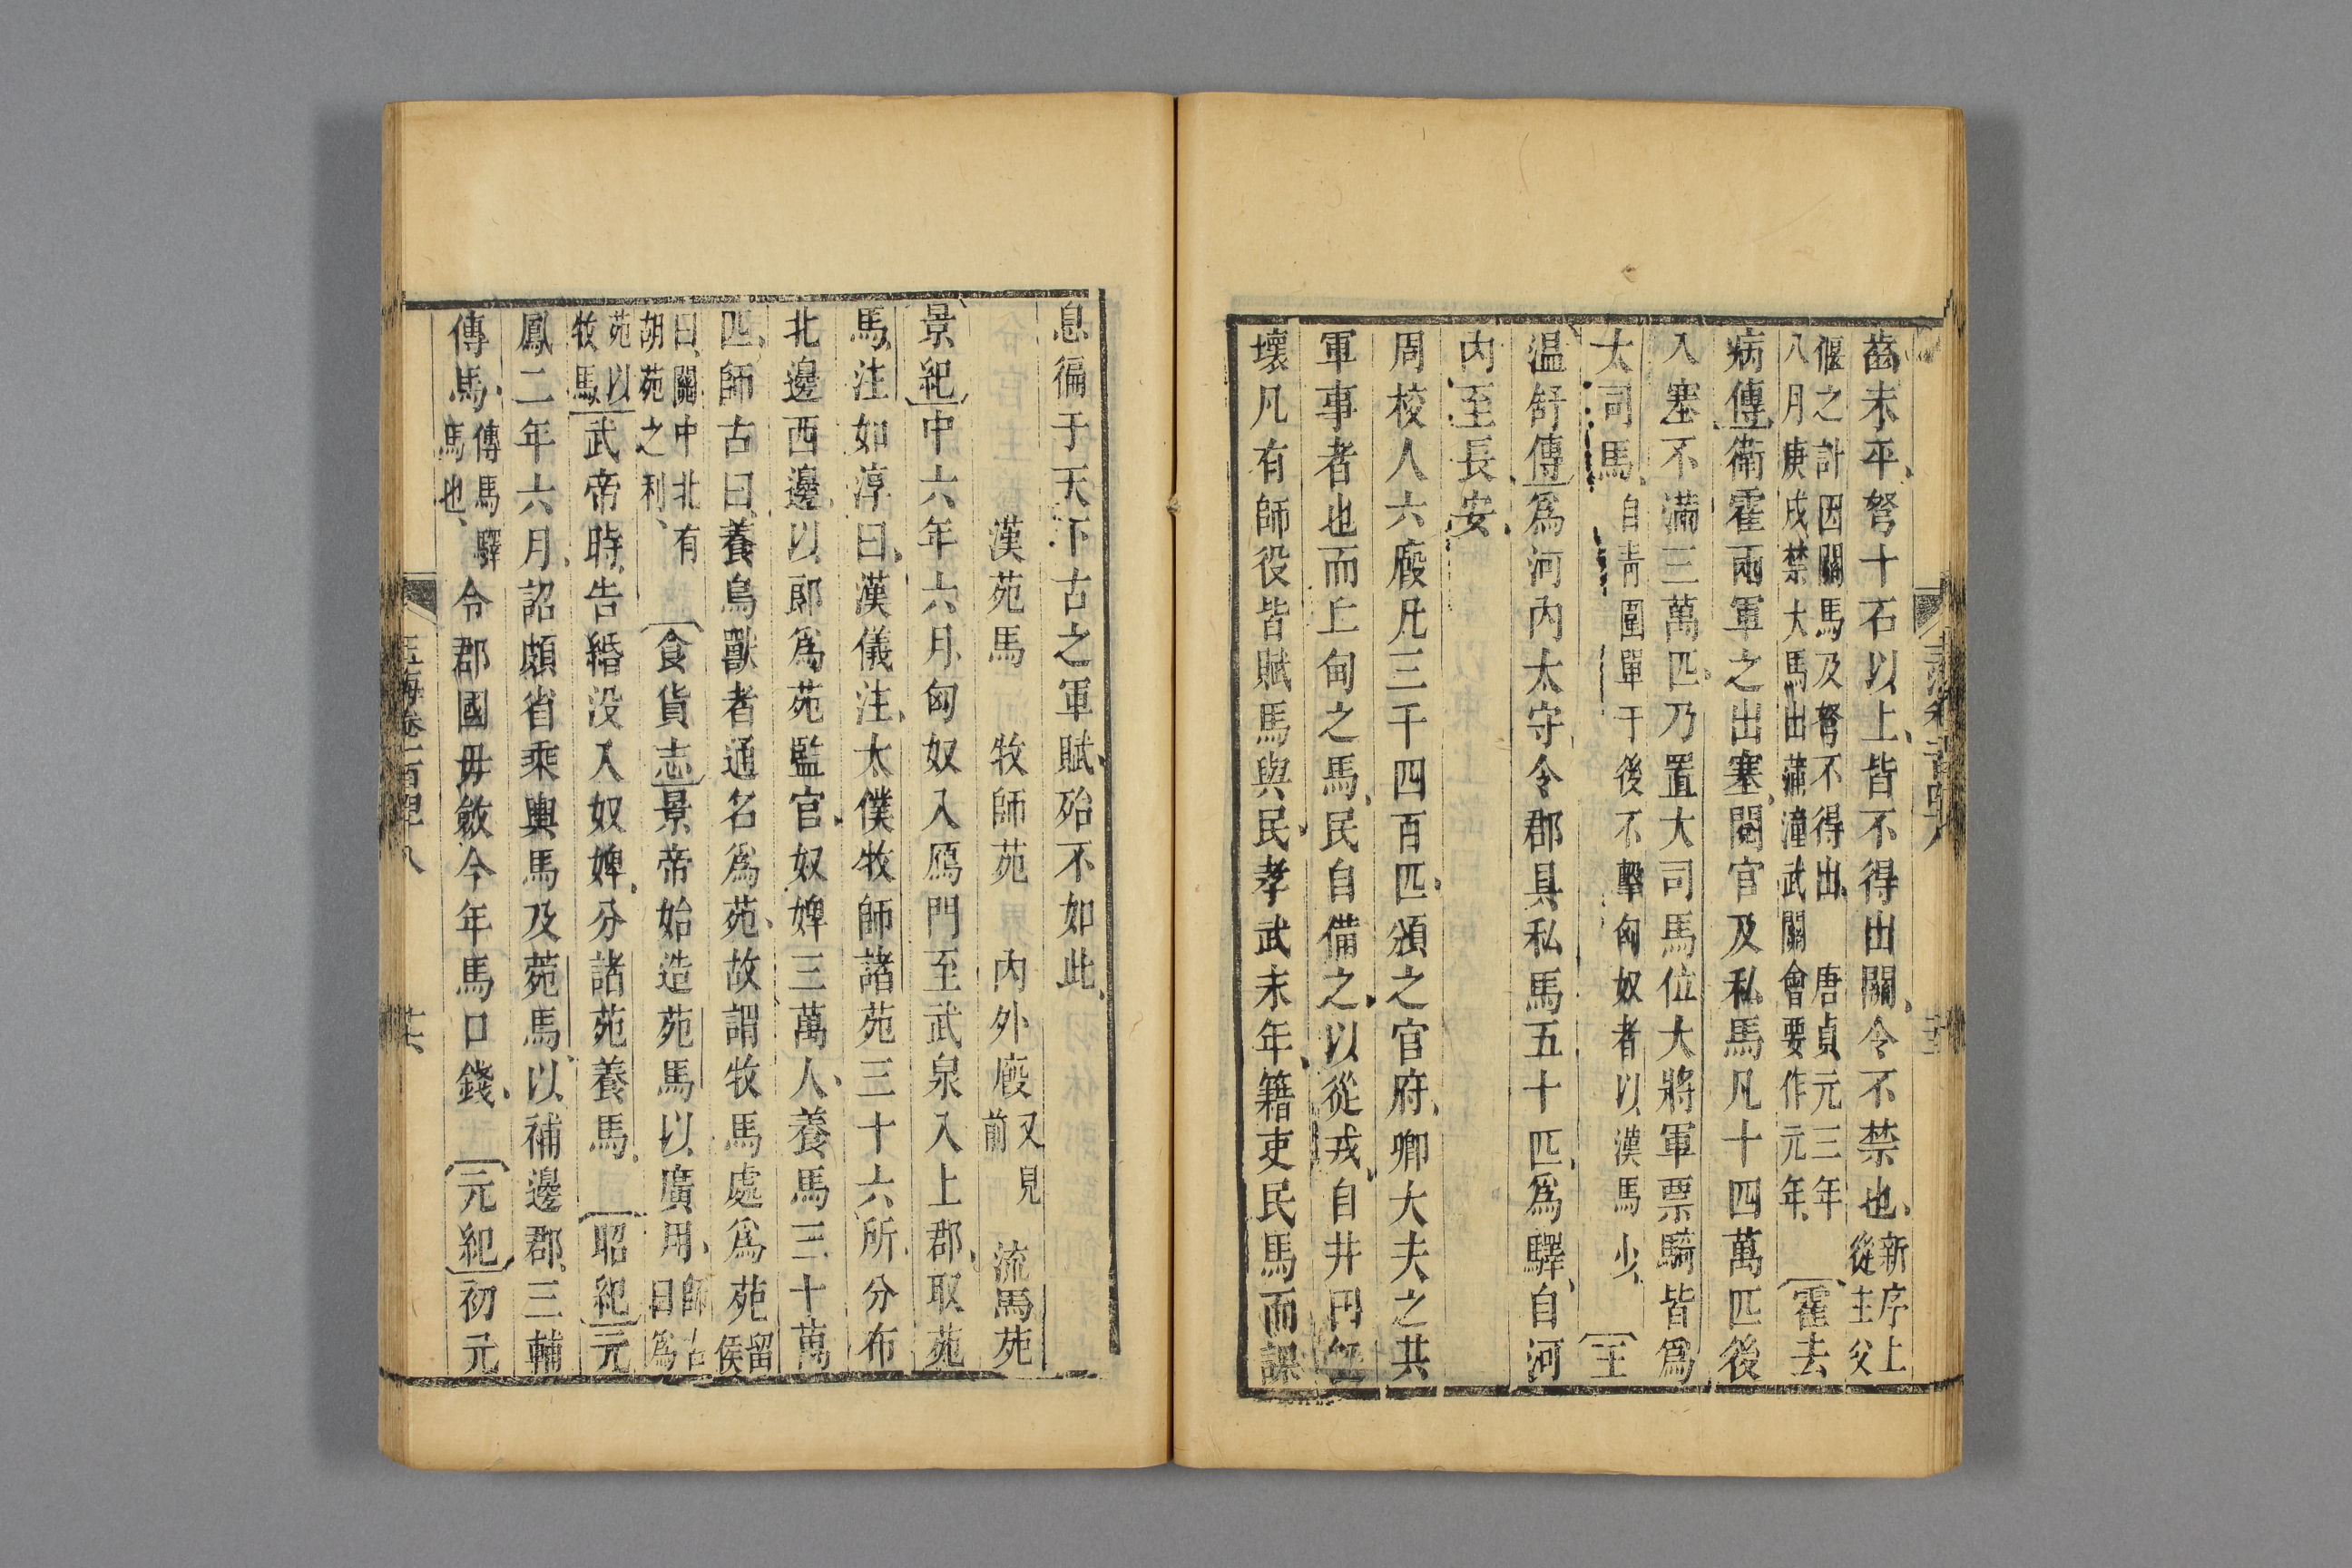 齒未平弩十石以上皆不得出關令不禁也新序上從主父
偃之計因關馬及弩不得出 唐貞元三年八月庚戌禁大馬出蒲潼武關會要作元年 霍去
病傳衛霍兩軍之出塞閱官及私馬凡十四萬匹後
入塞不滿三萬匹乃置大司馬位大將軍票騎皆爲
大司馬自青圍單于後不擊匈奴者以漢馬少 王
温舒傳爲河內太守令郡具私馬五十匹爲驛自河
內至長安
周校人六廄凡三千四百匹頒之官府卿大夫之共
軍事者也而上甸之馬民自備之以從戎自井田
壞凡有師役皆賦馬與民孝武末年籍吏民馬而課
息徧于天下古之軍賦殆不如此
漢苑馬 牧師苑 內外廄又見前 流馬苑
景紀中六年六月匈奴入鴈門至武泉入上郡取苑
馬注如淳曰漢儀注太僕牧師諸苑三十六所分布
北邊西邊以郎爲苑監官奴婢三萬人養馬三十萬
匹師古曰養鳥獸者通名爲苑故謂牧馬處爲苑留侯
曰關中北有胡苑之利 食貨志景帝始造苑馬以廣用師古曰爲
苑以牧馬武帝時告緡沒入奴婢分諸苑養馬 昭紀元
鳳二年六月詔頗省乘輿馬及菀馬以補邊郡三輔
傳馬傳馬驛馬也令郡國毋斂今年馬口錢 元紀初元
玉海卷一百四十八 共